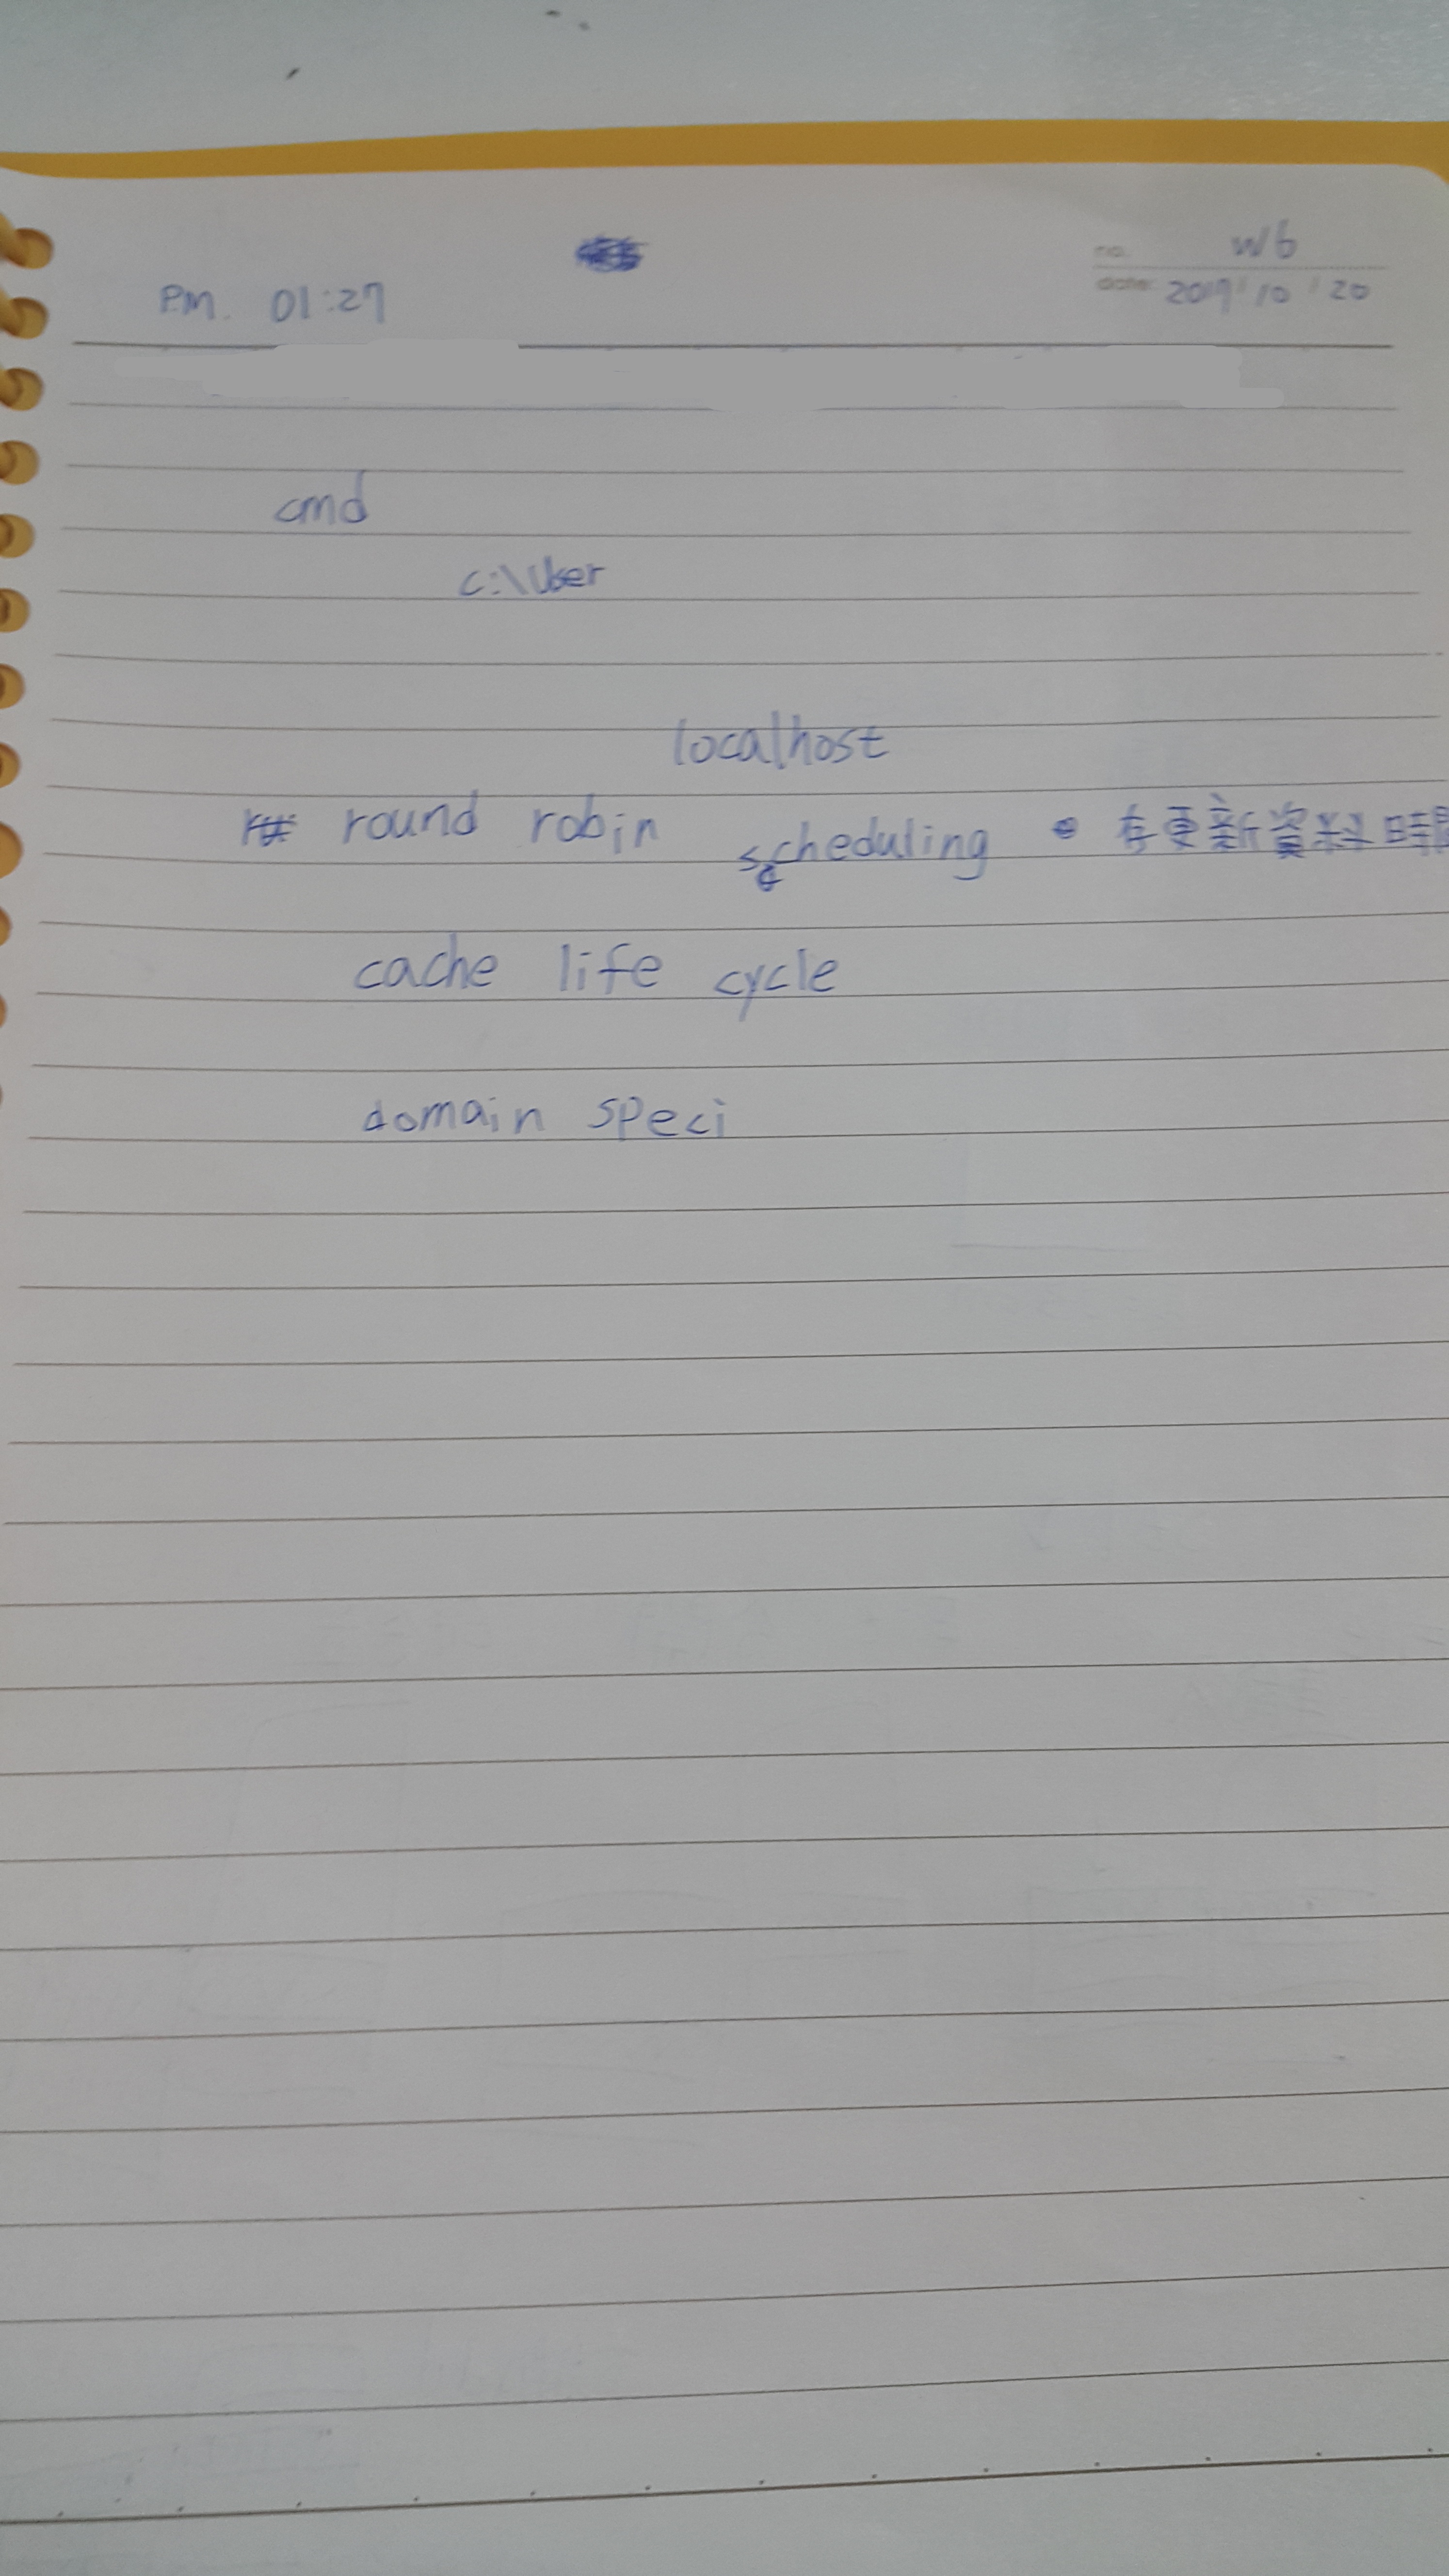 no. W6
P.M. 01:27 date: 2019 / 10 / 20
cmd
C:\User
localhost
round robin scheduling 存更新資料時
cache life cycle
domain speci